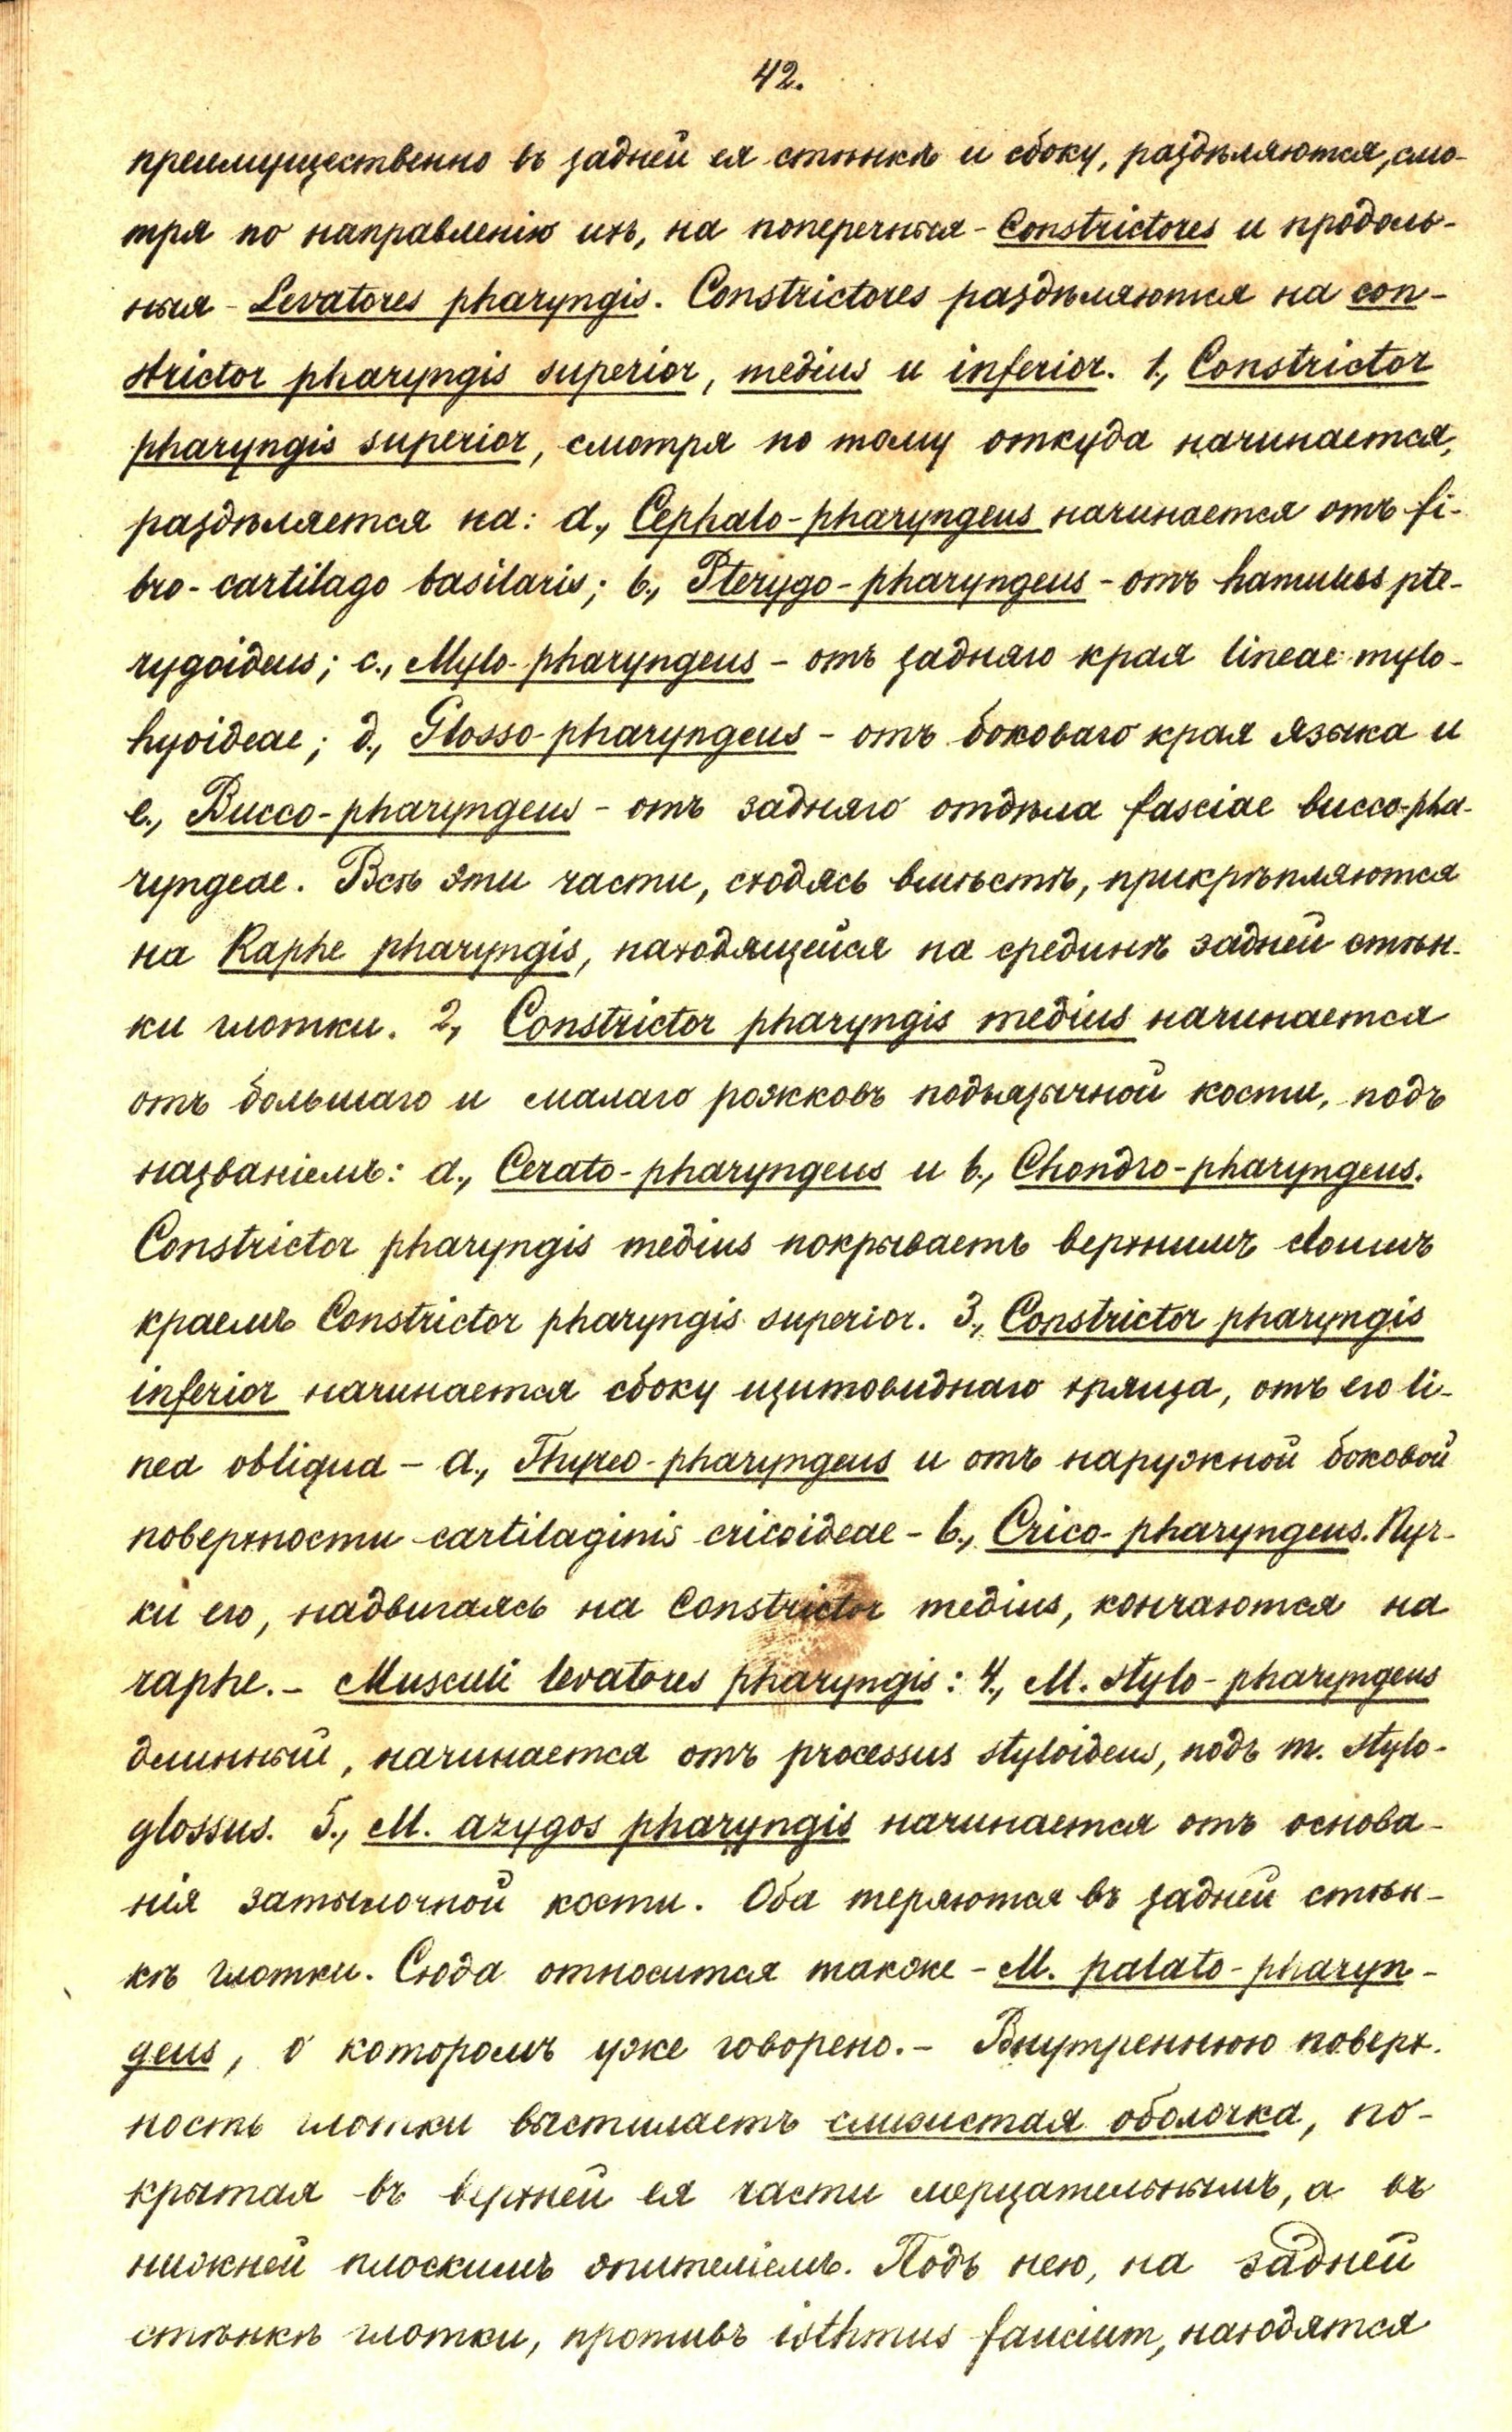 42.
преимущественно въ задней ея стѣнкѣ и сбоку, раздѣляются, смо-
тря по направленію ихъ, на поперечныя - Constrictores и продоль-
ныя - Levatores pharyngis. Constrictores раздѣляются на con-
strictor pharyngis superior, medius и inferior. 1., Constrictor
pharyngis superior, смотря по тому откуда начинается,
раздѣляется на: a., Cephalo-pharyngeus начинается отъ fi-
bro-cartilago basilaris; b., Pterygo-pharyngeus - отъ hamulus pte-
rygoideus; c., Mylo-pharyngeus - отъ задняго края lineae mylo-
hyoideae; d., Glosso-pharyngeus - отъ боковаго края языка и
e., Bucco-pharyngeus - отъ задняго отдѣла fasciae bucco-pha-
ryngeae. Всѣ эти части, сходясь вмѣстѣ, прикрѣпляются
на Raphe pharyngis, находящейся на срединѣ задней стѣн-
ки глотки. 2., Constrictor pharyngis medius начинается
отъ большаго и малаго рожковъ подъязычной кости, подъ
названіемъ: a., Cerato-pharyngeus и b., Chondro-pharyngeus.
Constrictor pharyngis medius покрываетъ верхнимъ своимъ
краемъ Constrictor pharyngis superior. 3., Constrictor pharyngis
inferior начинается сбоку щитовиднаго хряща, отъ его li-
nea obliqua - a., Thyreo-pharyngeus и отъ наружной боковой
поверхности cartilaginis cricoideae - b., Crico-pharyngeus. Пуч-
ки его, надвигаясь на Constrictor medius, кончаются на
raphe. - Musculi levatores pharyngis: 4., M. stylo-pharyngeus
длинный, начинается отъ processus styloideus, подъ m. stylo-
glossus. 5., M. azygos pharyngis начинается отъ основа-
нія затылочной кости. Оба теряются въ задней стѣн-
кѣ глотки. Сюда относится также - M. palato-pharyn-
geus, о которомъ уже говорено. - Внутреннюю поверх-
ность глотки выстилаетъ слизистая оболочка, по-
крытая въ верхней ея части мерцательнымъ, а въ
нижней плоскимъ эпителіемъ. Подъ нею, на задней
стѣнкѣ глотки, противъ isthmus faucium, находятся